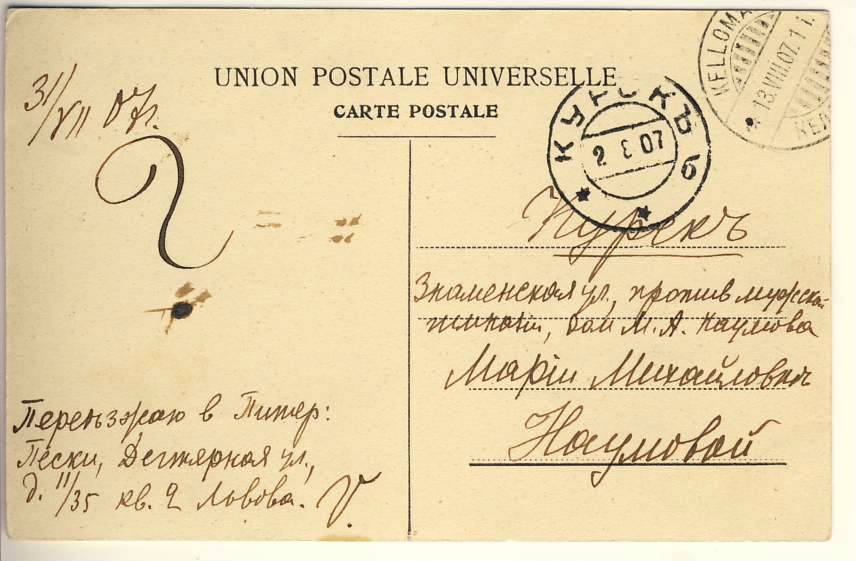 UNION POSTALE UNIVERSELLE
CARTE POSTALE
31/VII 07г.
?
КУРСКЪ
2 8 07
б
KELLOMA
13.VIII.07. 1 i.
КЕЛ
Курскъ
Знаменская ул., против мужской
гимназіи, дом М. А. Наумова
Маріи Михайловнѣ
Наумовой
Переѣзжаю в Питер:
Пески, Дегтярная ул.,
д. 11/35 кв. 2 Львова. V.